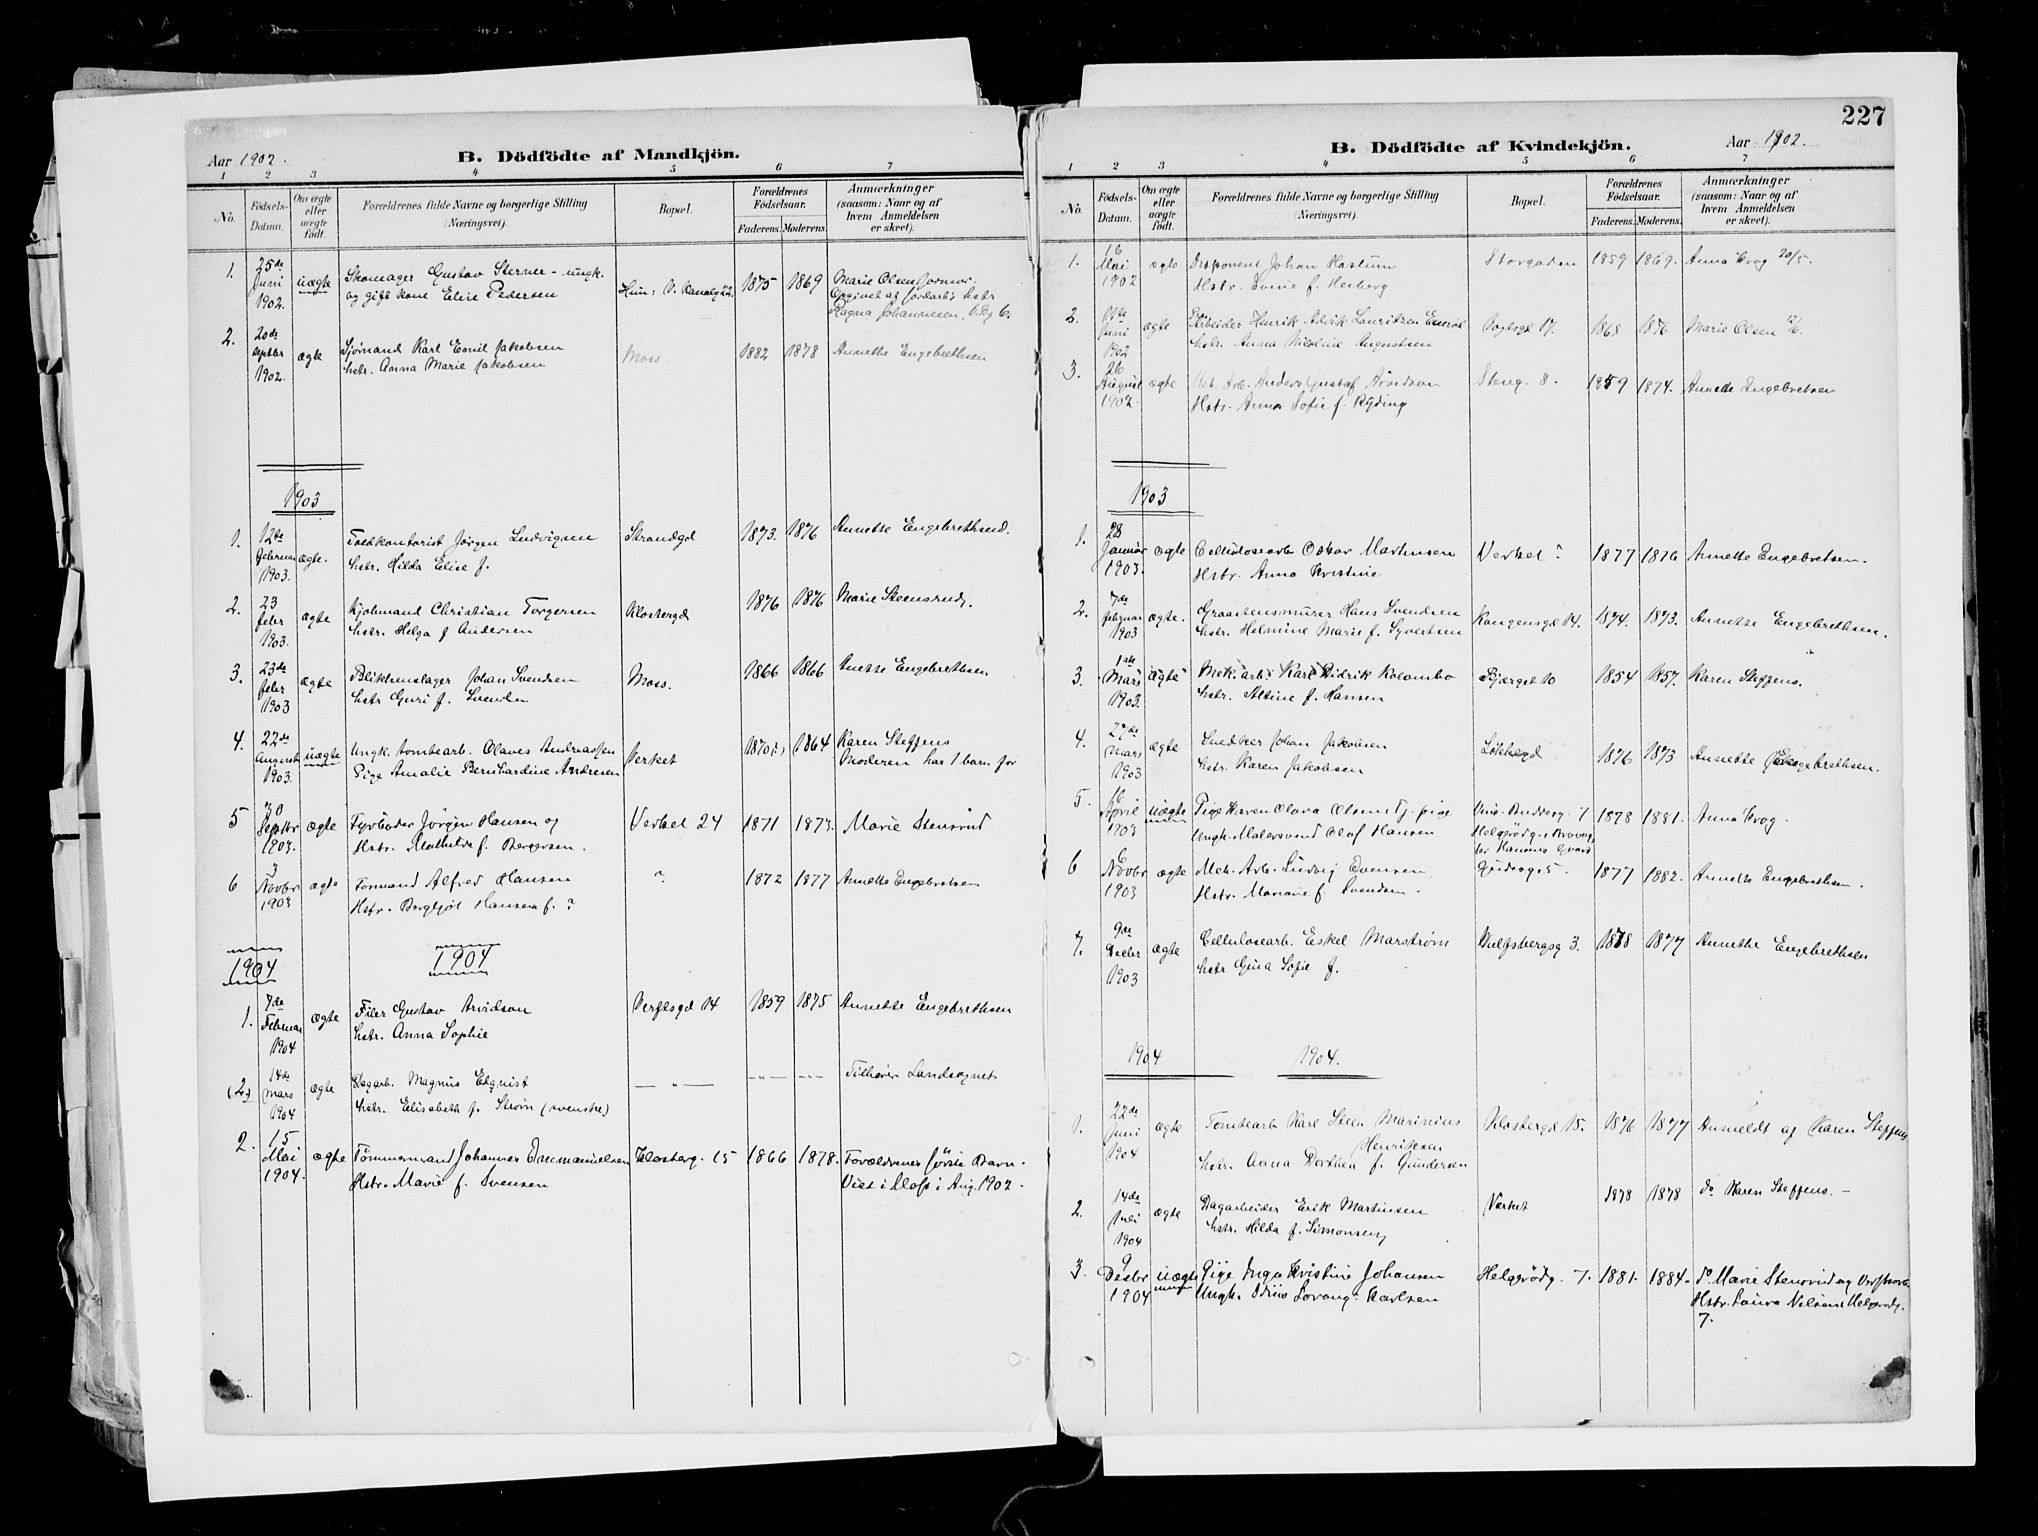 Aar 1902.
B. Dödfödte af Mandkjön.
1 2 3 4 5 6 7
No.
Födsels-Datum.
Om ægte eller uægte födt.
Forældrenes fulde Navne og borgerlige Stilling (Næringsvei).
Bopæl.
Forældrenes Födselsaar.
Faderens. Moderens.
Anmærkninger (saasom: Naar og af hvem Anmeldelsen er skeet).
1. 25de Juni 1902. uægte
Skomager Gustav Sterner - ungk.
og gift kone Elise Pedersen
V. Kanalg 22. 1875 1869
Marie Olsen Jormor.
Opgivet af
Ragna Johannesen,
2. 20de Septbr 1902. ægte
Sjømand Karl Emil Jakobsen
hstr. Anna Marie Jakobsen
Moss. 1882 1878 Annette Engebrethsen
1903
1. 12te Februar 1903. ægte.
Toldkontorist Jørgen Ludvigsen
hstr. Hilda Elise f.
Strandgd 1873. 1876 Annette Engebrethsend.
2. 23 febr 1903. ægte
Kjøbmand Christian Torgersen
hstr. Helga f Andersen
Klostergd 1876 1876 Marie Steensrud.
3. 23de febr 1903 ægte
Blikkenslager Johan Svendsen
hstr Guri f. Svendsen
Moss. 1866 1866 Anette Engebrethsen
4. 22de August 1903. uægte
Ungk. tomtearb. Olaves Andreassen
Pige Amalie Bernhardine Andresen
Verket 1870 1864 Karen Steffens
Moderen har 1 barn før
5 30 Septbr 1903. ægte
Fyrbøder Jörgen Hansen og
Hstr. Mathilde f. Bergersen.
Verket 24 1871 1873. Marie Stensrud
6 3 Novbr 1903 ægte
Formand Alfred Hansen
Hstr. Bergljót Hansen f. ?
? 1872 1877 Annette Engebretsen
1904 1904
1. 7de Februar 1904 ægte
Filer Gustav Arvidson
hstr. Anna Sophie
Verftsgd 14 1859 1875 Annette Engebrethsen
(2.) 14de Mars 1904 ægte
Dagarb. Magnus Elquist
hstr. Elisabeth f. Strøm (svenske)
— „ — Tilhører Landsognet
2. 15 Mai 1904. ægte
Tömmermand Johannes Emmanuelsen
Hstr. Marie f. Svensen
Klosterg. 15 1866 1878. Forældrenes første Barn.
Viet i Moss i Aug. 1902.
227
B. Dödfödte af Kvindekjön.
Aar 1902.
1 2 3 4 5 6 7
No.
Födsels-Datum.
Om ægte eller uægte födt.
Forældrenes fulde Navne og borgerlige Stilling (Næringsvei).
Bopæl.
Forældrenes Födselsaar.
Faderens. Moderens.
Anmærkninger (saasom: Naar og af hvem Anmeldelsen er skeet).
1. 16 Mai 1902 ægte
Disponent Johan Hastum
Hstr. f. Herberg
Storgaden 1859 1869. Anna Krog 20/5.
2. Juni 1902 ægte
Arbeider Henrik Lauritzen
hstr. Anna Nicoline Augustsen
Vogtsgd 17. 1868 1876 Marie Olsen
3. 26 August 1902. ægte
Mek. Arb. Anders Gustaf Arvidson
Hstr. Anna Sofie f. Ryding
Steng. 8. 1859 1874. Annette Engebretsen
1903
1. 28 Januar 1903. ægte
Cellulosearb Oskar Martinsen
Hstr. Anna Kristine
Verket ? 1877 1876 Annette Engebretsen.
2. 7de februar 1903 ægte.
Graastensmurer Hans Svendsen
hstr. Helmine Marie f. Syvertsen
Kongensgd 14. 1874. 1873. Annette Engebrethsen.
3. 1ste Mars 1903. ægte
Mek. arb. Karl Didrik Kolombo
hstr. Altine f. Hansen
Bjerget 10 1854 1857. Karen Steffens.
4. 27de Mars 1903 ægte
Snedker Johan Jakobsen
hstr. Karen Jakobsen
1876 1873 Annette Engebrethsen.
5. 16 April 1903 uægte
Pige Karen Olava Olsen Tj. pige
Ungk. Malersvend Olaf Hansen
1878 1881. Anna Krog.
6 6 Novbr 1903 ægte
Mek. Arb. Ludvig Evensen
Hstr. Mariane f. Svendsen.
Gudesg 5. 1877 1882. Annette Engebrethsen.
7. 9de Decbr 1903 ægte
Cellulosearb. Eskel Marstrøm
hstr Gina Sofie f.
Wulfsbergsg 3. 1878 1877 Annethe Engebrethsen
1904 1904.
1. 22de Juni 1904 ægte
Tomtearb Karl Steen Marinius
Henriksen
hstr. Anna Dorthea f. Gundersen
Klostergd 15. 1876 1877 Anmeldt af Karen Steffens
2. 14de Juli 1904 ægte
Dagarbeider Erik Martinsen
hstr. Hilda f. Simonsen
Værket 1878 1878 do Karen Steffens. —
3. 9 Desbr 1904 uægte
Pige Inga Kristine Johansen
Ungk. Karlsen
Helgerödg. 7. 1881. 1884. do Marie Stensrud og
Hstr. Laura Nilsen Helgerødg.
7.